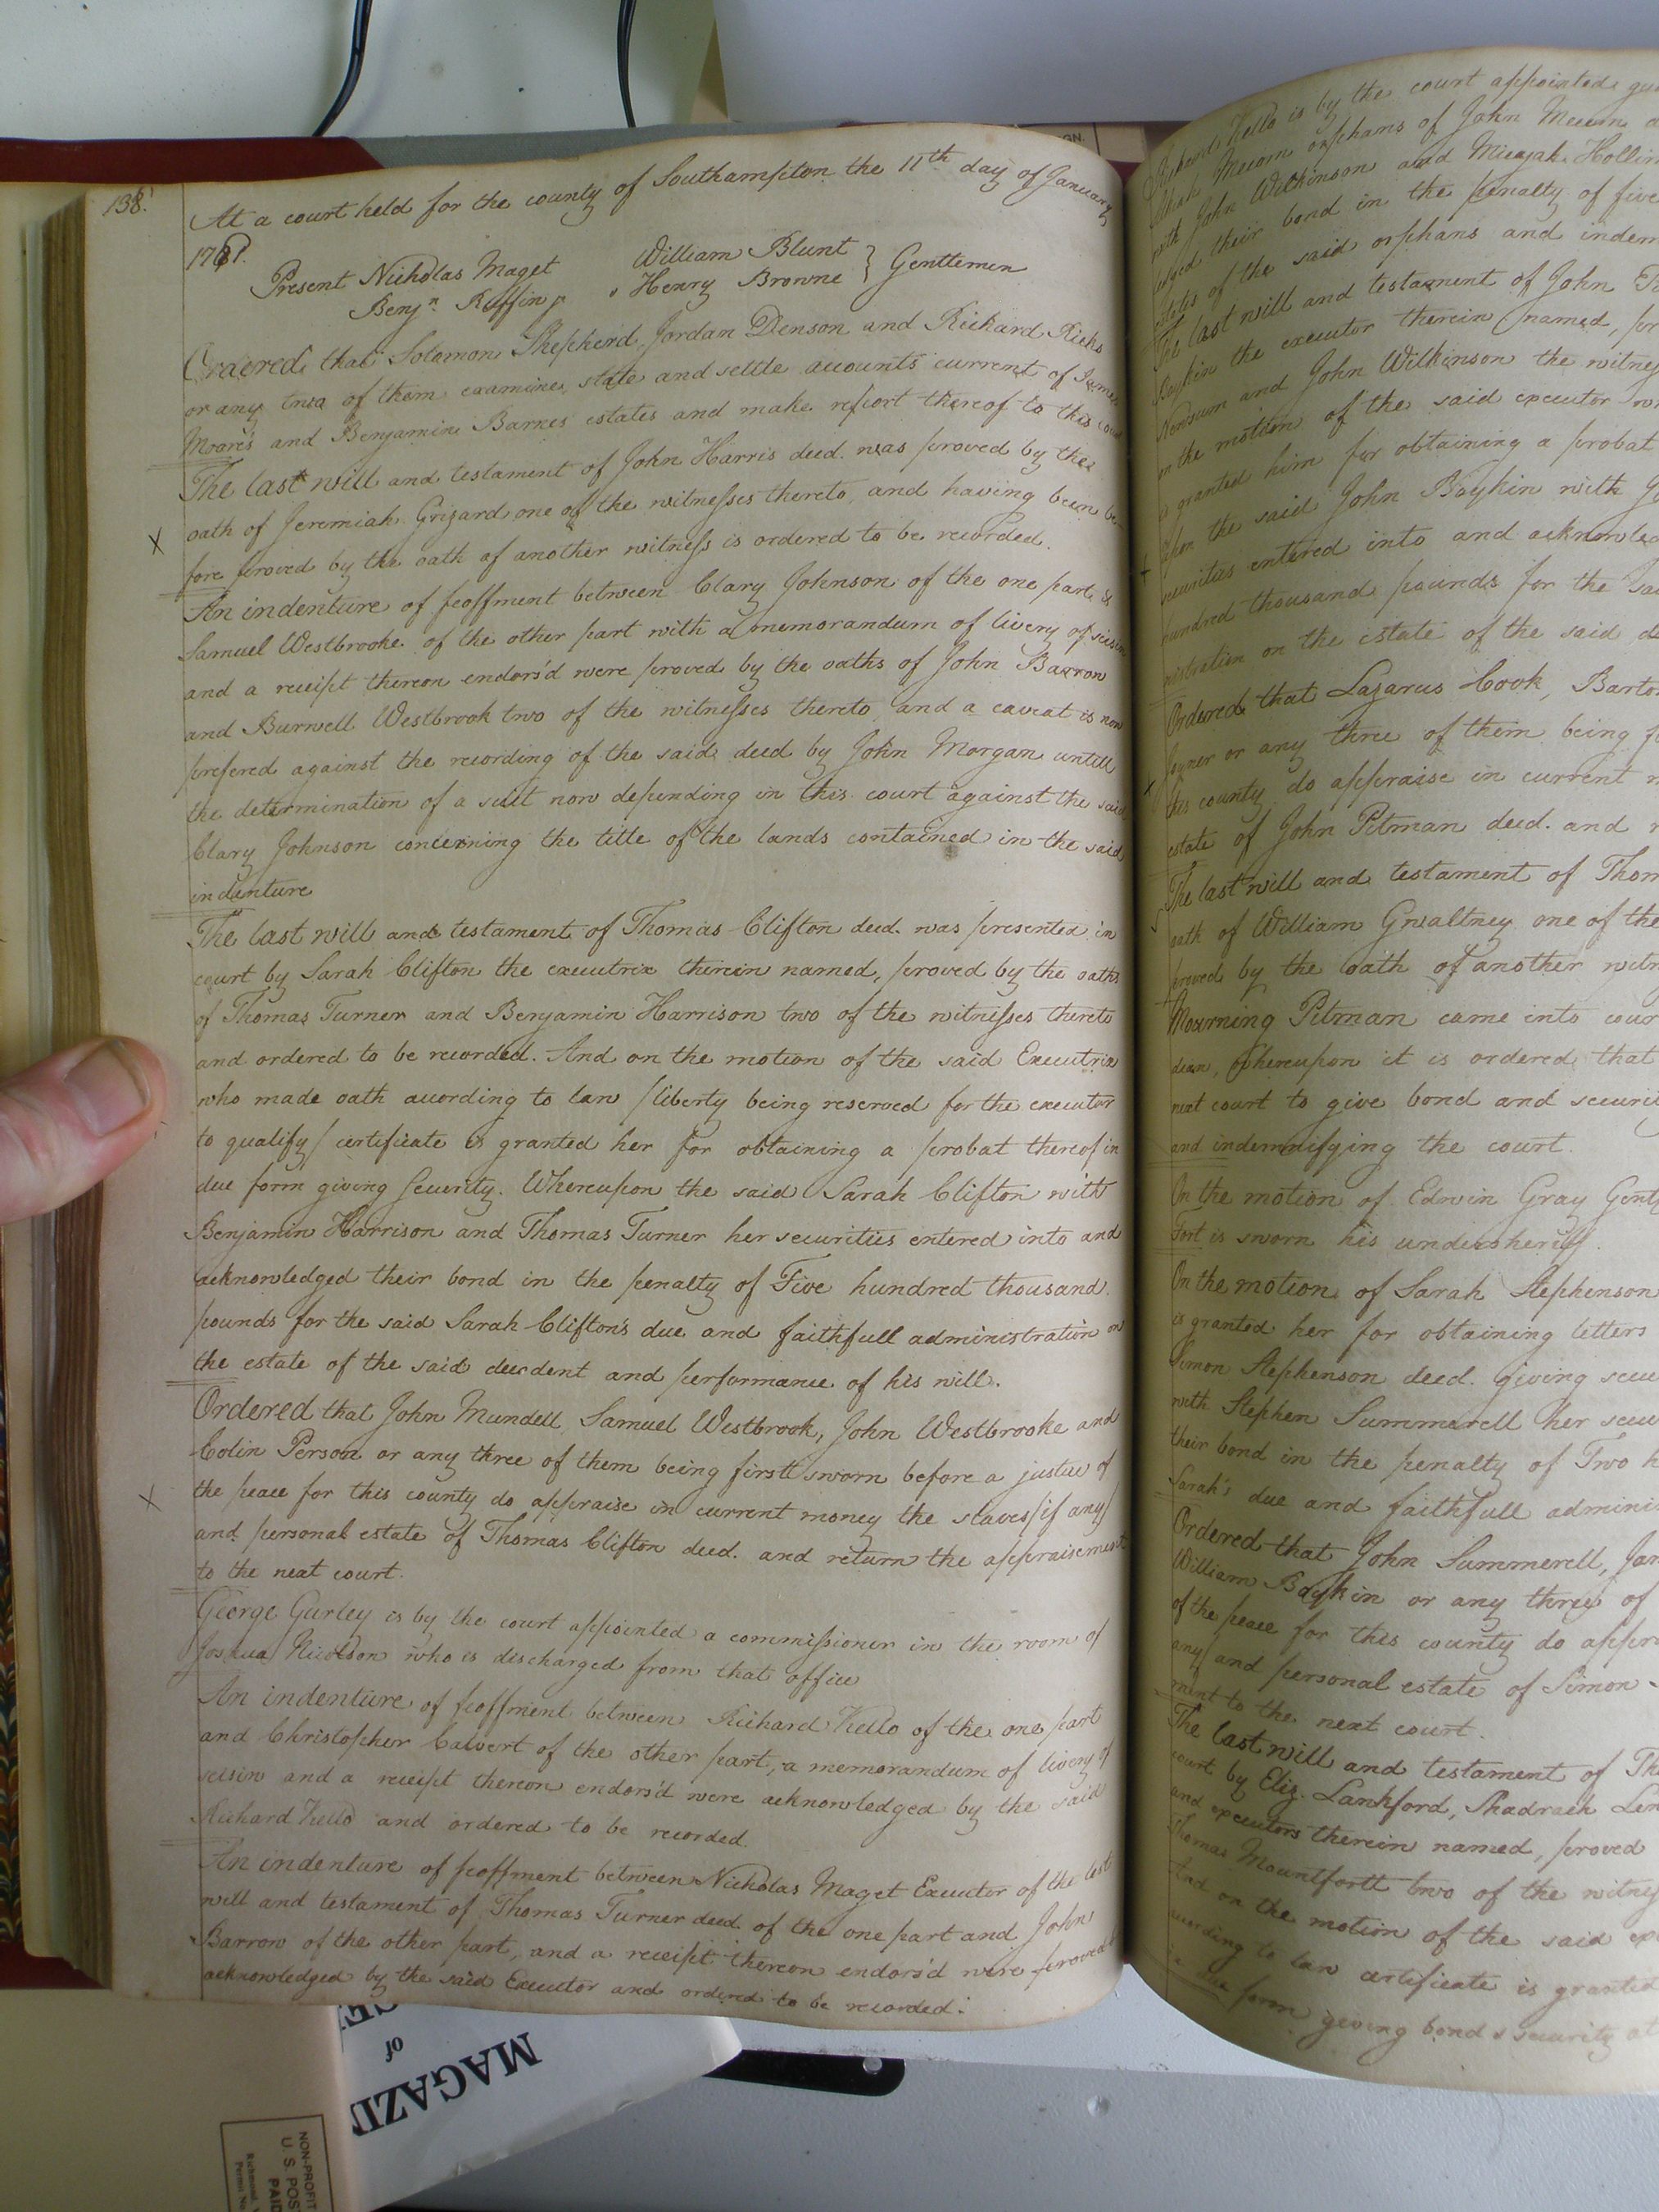 138.
At a court held for the county of Southampton the 11th day of January
1781.
Present Nicholas Maget William Blunt } Gentlemen
Benjn. Ruffin jr & Henry Browne
Ordered that Solomon Shepherd, Jordan Denson and Richard Ricks
or any two of them examine, state and settle accounts current of James
Moore's and Benjamin Barnes estates and make report thereof to this court
The last will and testament of John Harris deed. was proved by the
oath of Jeremiah Grizard one of the witnesses thereto, and having been be-
X
fore proved by the oath of another witness is ordered to be recorded.
An indenture of feoffment between Clary Johnson of the one part &
Samuel Westbrooke of the other part with a memorandum of livery of seisin
and a receipt thereon endors'd were proved by the oaths of John Barrow
and Burwell Westbrook two of the witnesses thereto, and a caveat is now
prefered against the recording of the said deed by John Morgan untill
the determination of a suit now depending in this court against the said
Clary Johnson concerning the title of the lands contained in the said
indenture
The last will and testament of Thomas Clifton deed. was presented in
court by Sarah Clifton the executrix therein named, proved by the oaths
of Thomas Turner and Benjamin Harrison two of the witnesses thereto
and ordered to be recorded. And on the motion of the said Executrix
who made oath according to law /liberty being reserved for the executor
to qualify/ certificate is granted her for obtaining a probat thereof in
due form giving security. Whereupon the said Sarah Clifton with
Benjamin Harrison and Thomas Turner her securities entered into and
acknowledged their bond in the penalty of Five hundred thousand
pounds for the said Sarah Clifton's due and faithfull administration on
the estate of the said decedent and performance of his will.
Ordered that John Mundell, Samuel Westbrook, John Westbrooke and
Colin Person or any three of them being first sworn before a justice of
X
the peace for this county do appraise in current money the slaves/if any/
and personal estate of Thomas Clifton deed. and return the appraisement
to the next court.
George Gurley is by the court appointed a commissioner in the room of
Joshua Nicolson who is discharged from that office
An indenture of feoffment between Richard Kello of the one part
and Christopher Calvert of the other part, a memorandum of livery of
seisin and a receipt thereon endors'd were acknowledged by the said
Richard Kello and ordered to be recorded.
An indenture of feoffment between Nicholas Maget Executor of the last
will and testament of Thomas Turner deed. of the one part and John
Barrow of the other part, and a receipt thereon endors'd were proved
acknowledged by the said Executor and ordered to be recorded.
Kello is by the court appointed
orphans of John
with John Wilkinson and Micajah
their bond in the penalty of five
of the said orphans and
The last will and testament of John
Boykin the executor therein named,
and John Wilkinson the
on the motion of the said executor
is granted him for obtaining a probat
the said John Boykin with
securities entered into and
hundred thousand pounds for the
on the estate of the said
Ordered that Lazarus Cook,
Joyner or any three of them being
this county do appraise in current
estate of John Pitman deed. and
The last will and testament of
oath of William Gwaltney one of the
proved by the oath of another
Mourning Pitman came into
whereupon it is ordered that
next court to give bond and
and indemnifying the court.
On the motion of Edwin Gray
Fort is sworn his undersheriff.
On the motion of Sarah Stephenson
is granted her for obtaining letters
Simon Stephenson deed. giving
with Stephen Summerell her
their bond in the penalty of Two
Sarah's due and faithfull
Ordered that John Summerell,
William Boykin or any three of
of the peace for this county do
any/ and personal estate of Simon
ment to the next court.
The last will and testament of
court by Eliz. Lankford, Shadrach
and executors therein named, proved
Thomas Mountfortt two of the
And on the motion of the said
according to law certificate is granted
in due form giving bond & security
of
MAGAZI
NON-PROFIT
U. S. POS
PAID
Richmond,
Permit No.